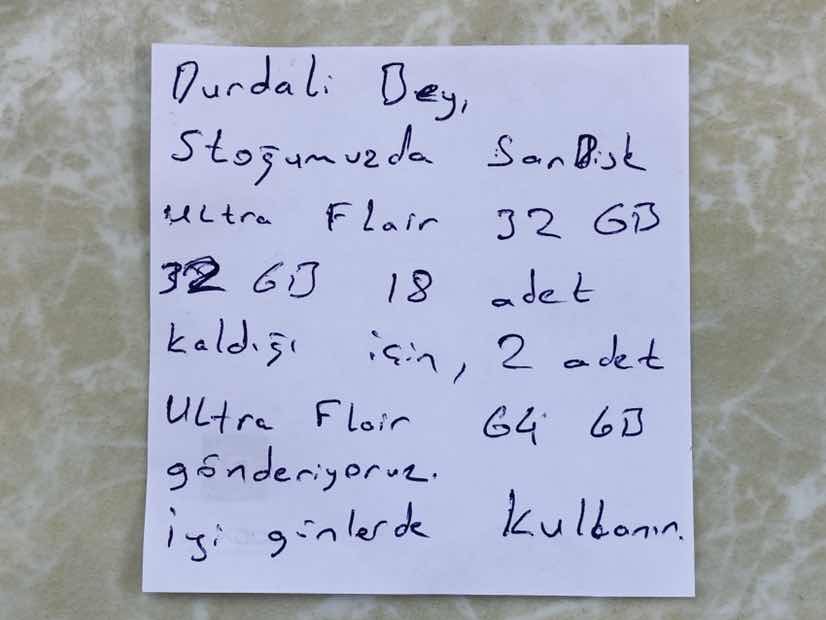 Durdali Bey,
Stoğumuzda SanDisk
Ultra Flair 32 GB
32 GB 18 adet
kaldığı için, 2 adet
Ultra Flair 64 GB
gönderiyoruz.
iyi günlerde kullanın.